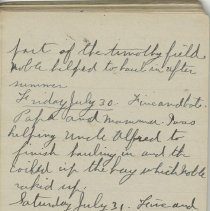 part of the timothy field
noble helped to haul in after
summer
Friday July 30. Fine and hot.
Papa and Mamma. Was
helping Uncle Alfred to
finish hauling in and th
coiled up the hay which noble
raked up.
Saturday July 31. Fine and